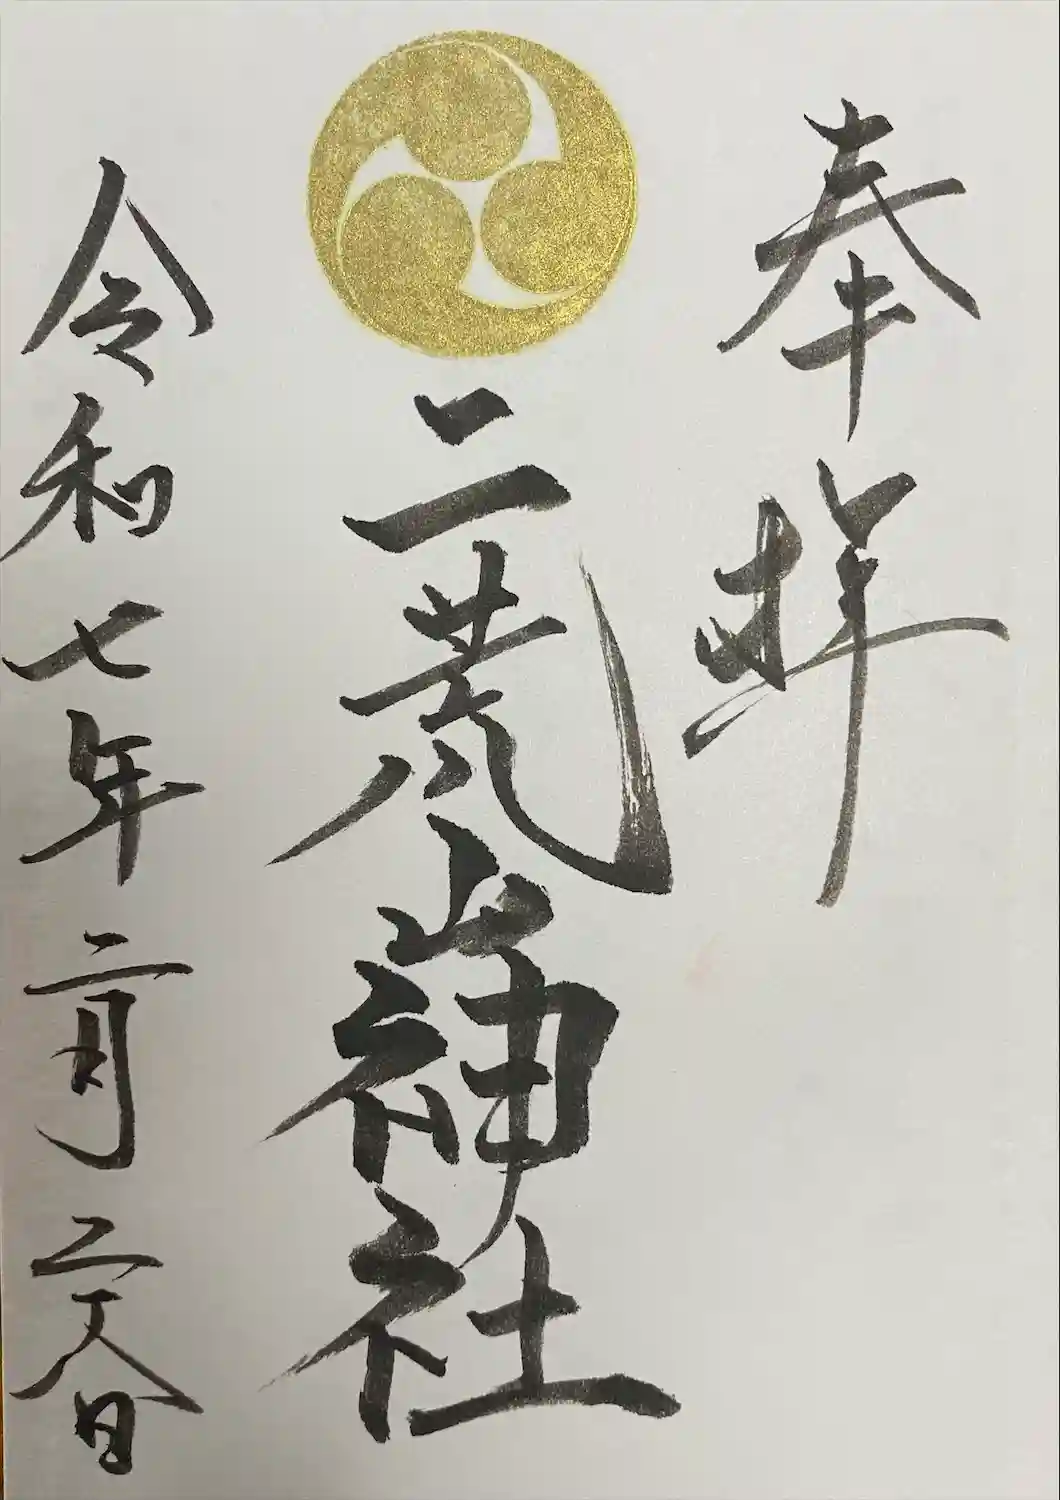 奉拝
二荒山神社
令和七年二月二十八日